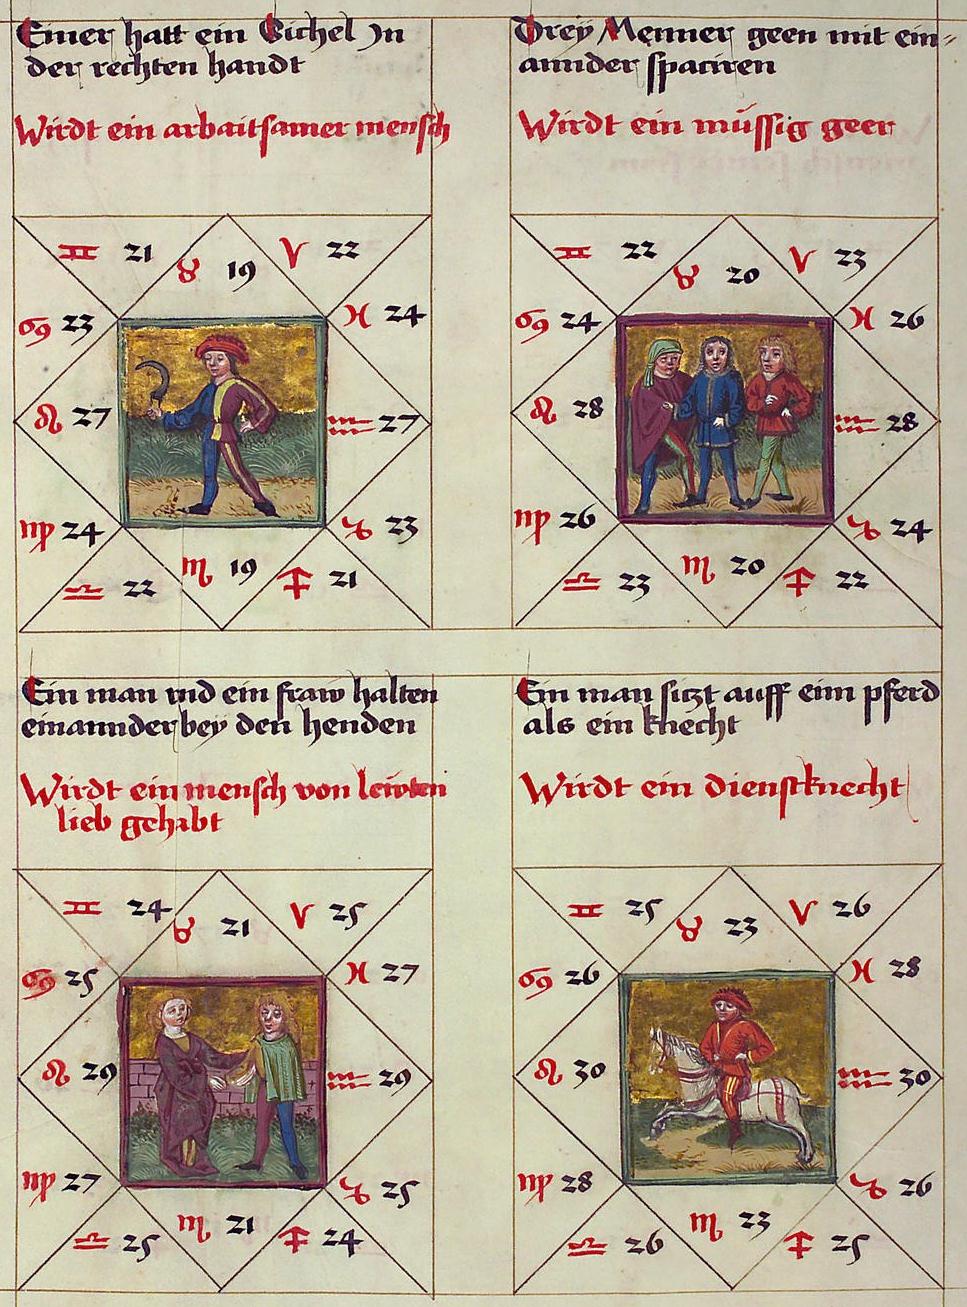 Einer hatt ein Sichel In
der rechten handt
Wirdt ein arbaitsamer mensch
♊ 21 ♉ 19 ♈ 22
♋ 23 ♓ 24
♌ 27 ♒ 27
♍ 24 ♑ 23
♎ 22 ♏ 19 ♐ 21
Drey Menner geen mit ein-
annder spaciren
Wirdt ein müssig geer
♊ 22 ♉ 20 ♈ 23
♋ 24 ♓ 26
♌ 28 ♒ 28
♍ 26 ♑ 24
♎ 23 ♏ 20 ♐ 22
Ein man vnd ein fraw halten
einannder bey den henden
Wirdt ein mensch von lewten
lieb gehabt
♊ 24 ♉ 21 ♈ 25
♋ 25 ♓ 27
♌ 29 ♒ 29
♍ 27 ♑ 25
♎ 25 ♏ 21 ♐ 24
Ein man sitzt auff eim pferd
als ein knecht
Wirdt ein dienstknecht
♊ 25 ♉ 23 ♈ 26
♋ 26 ♓ 28
♌ 30 ♒ 30
♍ 28 ♑ 26
♎ 26 ♏ 23 ♐ 25